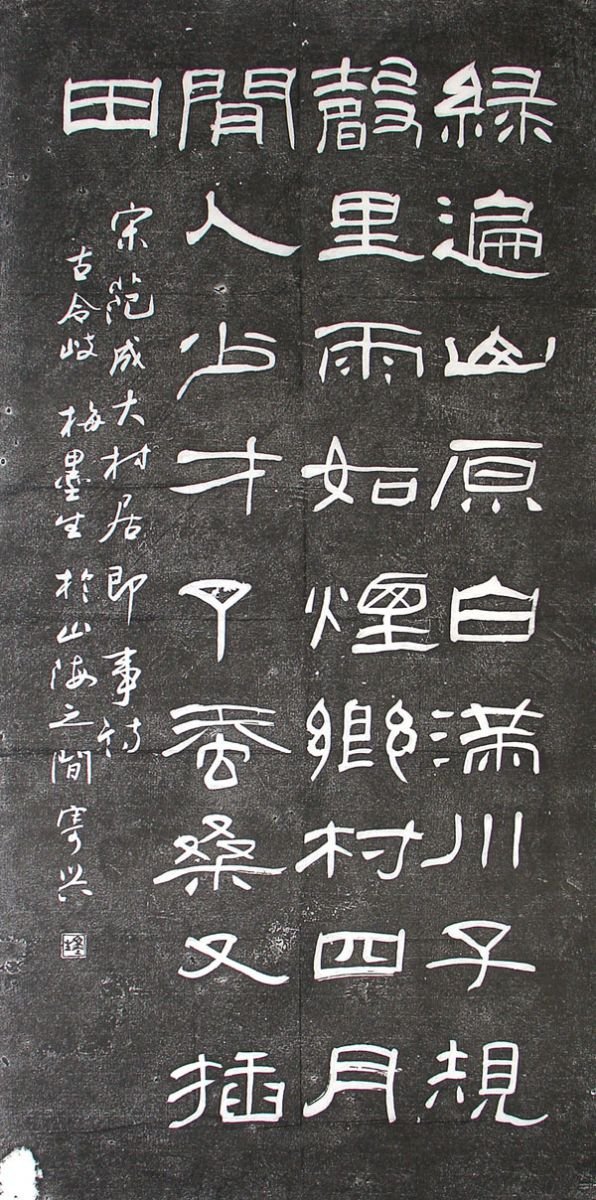 緑遍山原白滿川子規
聲里雨如煙鄉村四月
間人少才了蚕桑又插
田
宋范成大村居即事诗
古令岐 梅墨生 於山海之间 寄兴